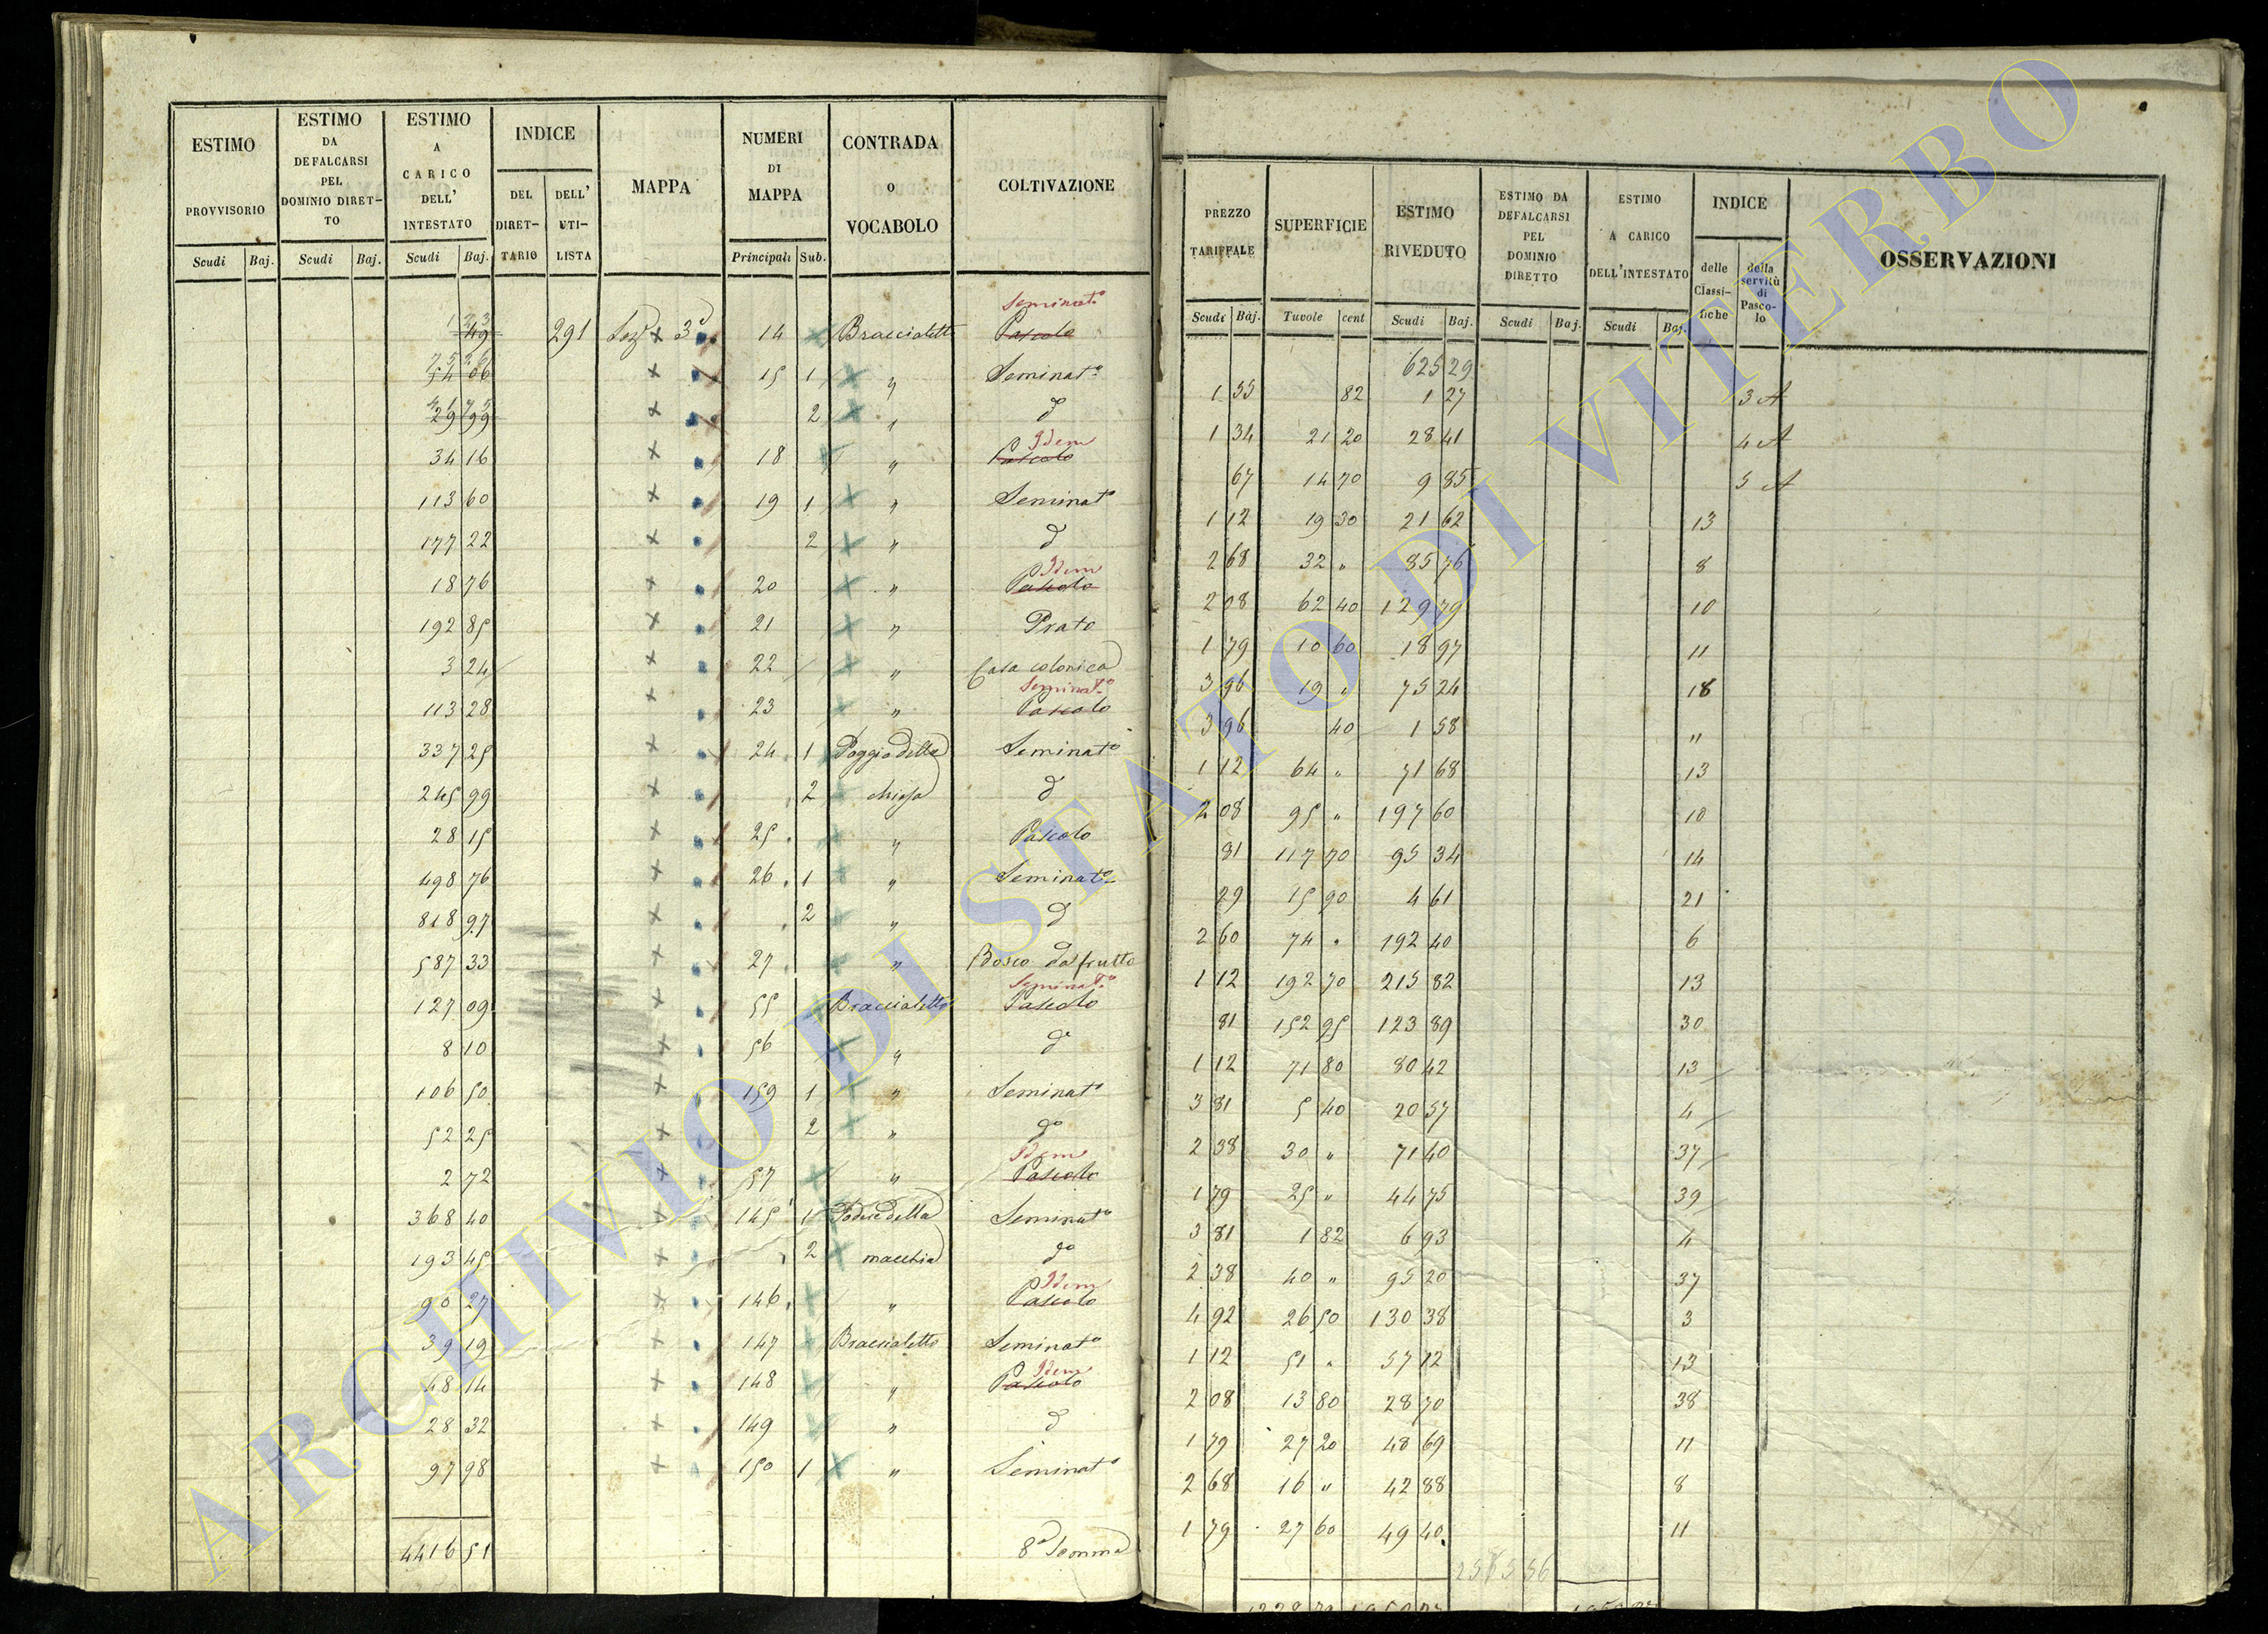 ESTIMO PROVVISORIO Scudi Baj.
ESTIMO DA DEFALCARSI PEL DOMINIO DIRETTO Scudi Baj.
ESTIMO A CARICO DELL' INTESTATO Scudi Baj.
INDICE DEL DIRETTARIO DELL' UTILISTA
MAPPA
NUMERI DI MAPPA Principali Sub.
CONTRADA O VOCABOLO
COLTIVAZIONE
1 23 49 291 3ª 14 Braccialetto Seminatº Pascolo
75 26 54 06 15 1 " Seminatº
41 75 29 99 2 " dº
34 16 18 " Idem Pascolo
113 60 19 1 " Seminatº
177 22 2 " dº
18 76 20 " Idem Pascolo
192 85 21 " Prato
3 24 22 " Casa colonica
113 28 23 " Seminatº Pascolo
337 25 24 1 Poggio della Seminatº
245 99 2 chiesa dº
28 15 25 " Pascolo
498 76 26 1 " Seminatº
818 97 2 " dº
587 33 27 " Bosco da frutto
127 09 55 Braccialetto Seminatº Pascolo
8 10 56 " dº
106 50 159 1 " Seminatº
52 25 2 " dº
2 72 57 " Idem Pascolo
368 40 145 1 Podere della Seminatº
193 45 2 macchia dº
90 27 146 " Idem Pascolo
39 19 147 Braccialetto Seminatº
48 14 148 " Idem Pascolo
28 32 149 " dº
97 98 150 1 " Seminatº
4416 51 8ª Somma
PREZZO TARIFFALE Scudi Baj.
SUPERFICIE Tavole cent
ESTIMO RIVEDUTO Scudi Baj.
ESTIMO DA DEFALCARSI PEL DOMINIO DIRETTO Scudi Baj.
ESTIMO A CARICO DELL'INTESTATO Scudi Baj.
INDICE delle Classifiche della servitù di Pascolo
OSSERVAZIONI
625 29
1 55 82 1 27 3 A
1 34 21 20 28 41 4 A
67 14 70 9 85 5 A
1 12 19 30 21 62 13
2 68 32 " 85 76 8
2 08 62 40 129 79 10
1 79 10 60 18 97 11
3 96 19 " 75 24 18
3 96 40 1 58 "
1 12 64 " 71 68 13
2 08 95 " 197 60 10
81 117 70 95 34 14
29 15 90 4 61 21
2 60 74 " 192 40 6
1 12 192 70 215 82 13
81 152 95 123 89 30
1 12 71 80 80 42 13
3 81 5 40 20 57 4
2 38 30 " 71 40 37
1 79 25 " 44 75 39
3 81 1 82 6 93 4
2 38 40 " 95 20 37
4 92 26 50 130 38 3
1 12 51 " 57 12 13
2 08 13 80 28 70 38
1 79 27 20 48 69 11
2 68 16 " 42 88 8
1 79 27 60 49 40 11
ARCHIVIO DI STATO DI VITERBO